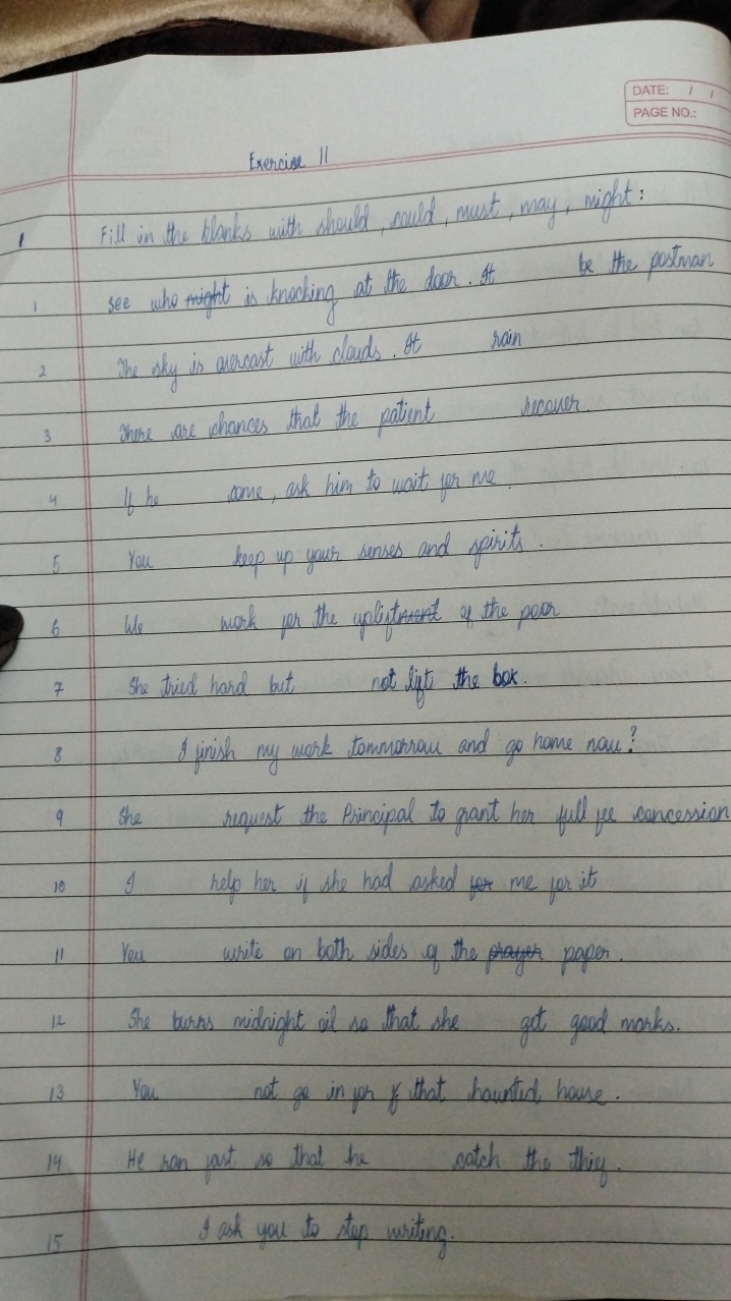 DATE: / /
PAGE NO.:
Exercise 11
1 Fill in the blanks with should, could, must, may, might:
1 See who might is knocking at the door. It be the postman
2 The sky is overcast with clouds. It rain
3 There are chances that the patient recover.
4 If he come, ask him to wait for me.
5 You keep up your senses and spirits.
6 We work for the upliftment of the poor
7 She tried hard but not lift the box.
8 I finish my work tommorrow and go home now?
9 She request the Principal to grant her full fee concession
10 I help her if she had asked for me for it
11 You write on both sides of the prayer paper.
12 She burns midnight oil so that she get good marks.
13 You not go in for that haunted house.
14 He ran fast so that he catch the thief.
15 I ask you to stop writing.